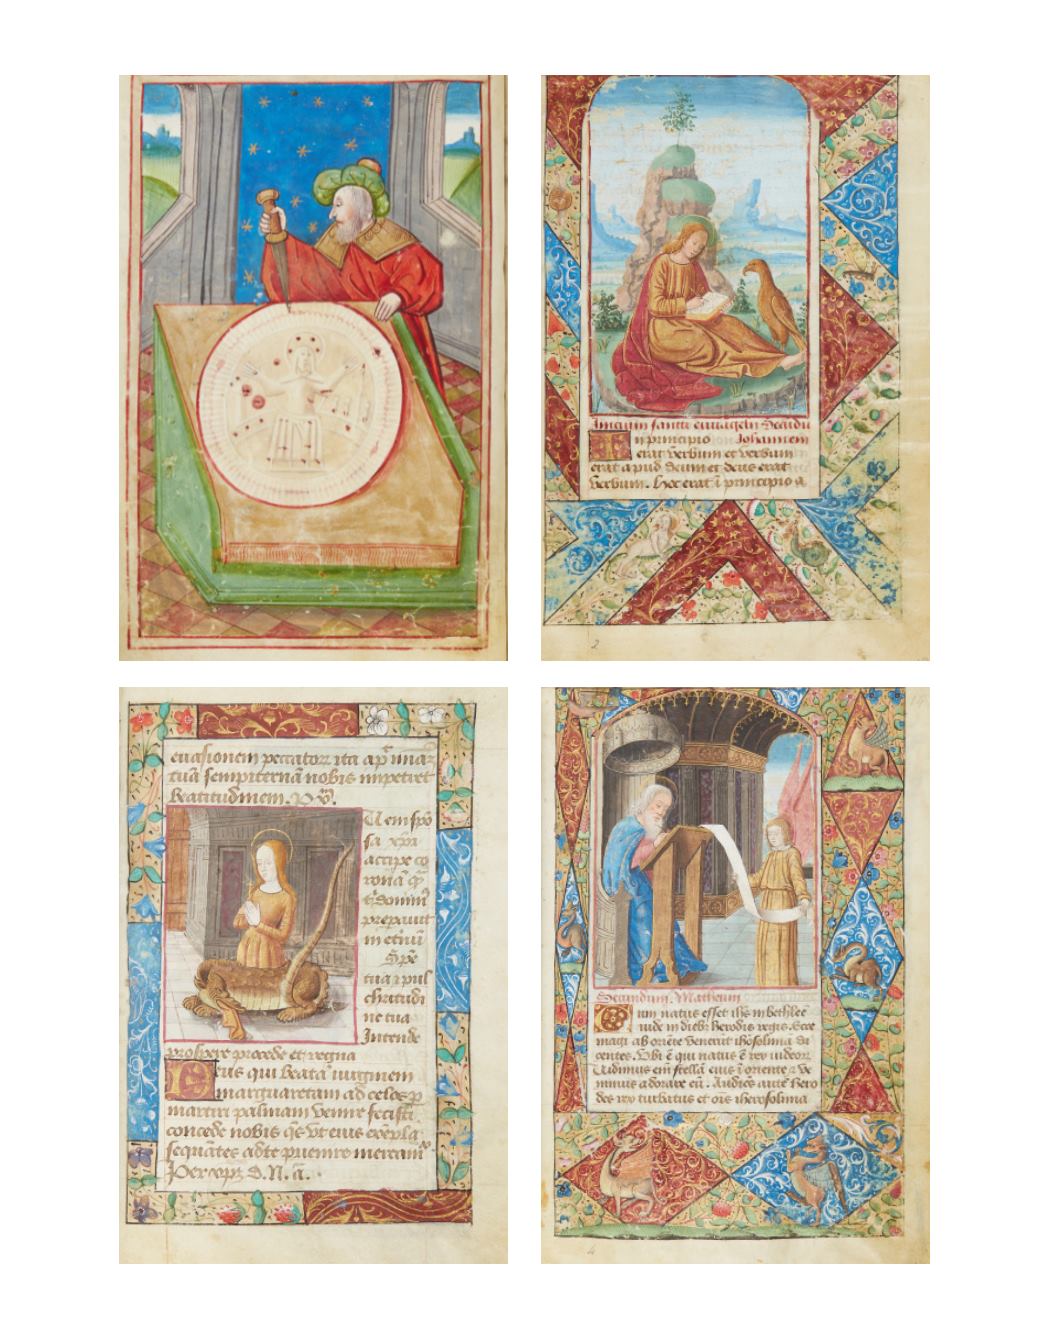 Inicium sancti euuāgelii Secūdu
In principio Johannem
erat verbum et verbum
erat apud deum et deus erat
verbum. Hoc erat ī principio a
2
euasionem peccatorꝝ ita ap̄
tuā sempiternā nobis impetret
beatitudinem.
Ueni spō
sa xp̄i
accipe co
ronā
dominꝰ
preparauit
in eternū
Spē
tua ⁊ pul
chritudi
ne tua
Intende
prospere procede et regna
Deus qui beatā uirginem
marguaretam ad celos ꝑ
martiri palmam venire fecisti
concede nobis q̄s vt eius exēpla
sequētes ad te
Per D. N. ā.
Secundum Matheum
Cum natus esset ihs̄ in bethleē
iude in diebꝰ herodis regis. Ecce
magi ab oriēte venerūt ihosolimā di
centes. Vbi ē qui natus ē rex iudeorꝝ
Vidimus em̄ stellā eius ī oriente ⁊ ve
nimus adorare eū. Audiēs autē hero
des rex turbatus et oīs iherosolima
4